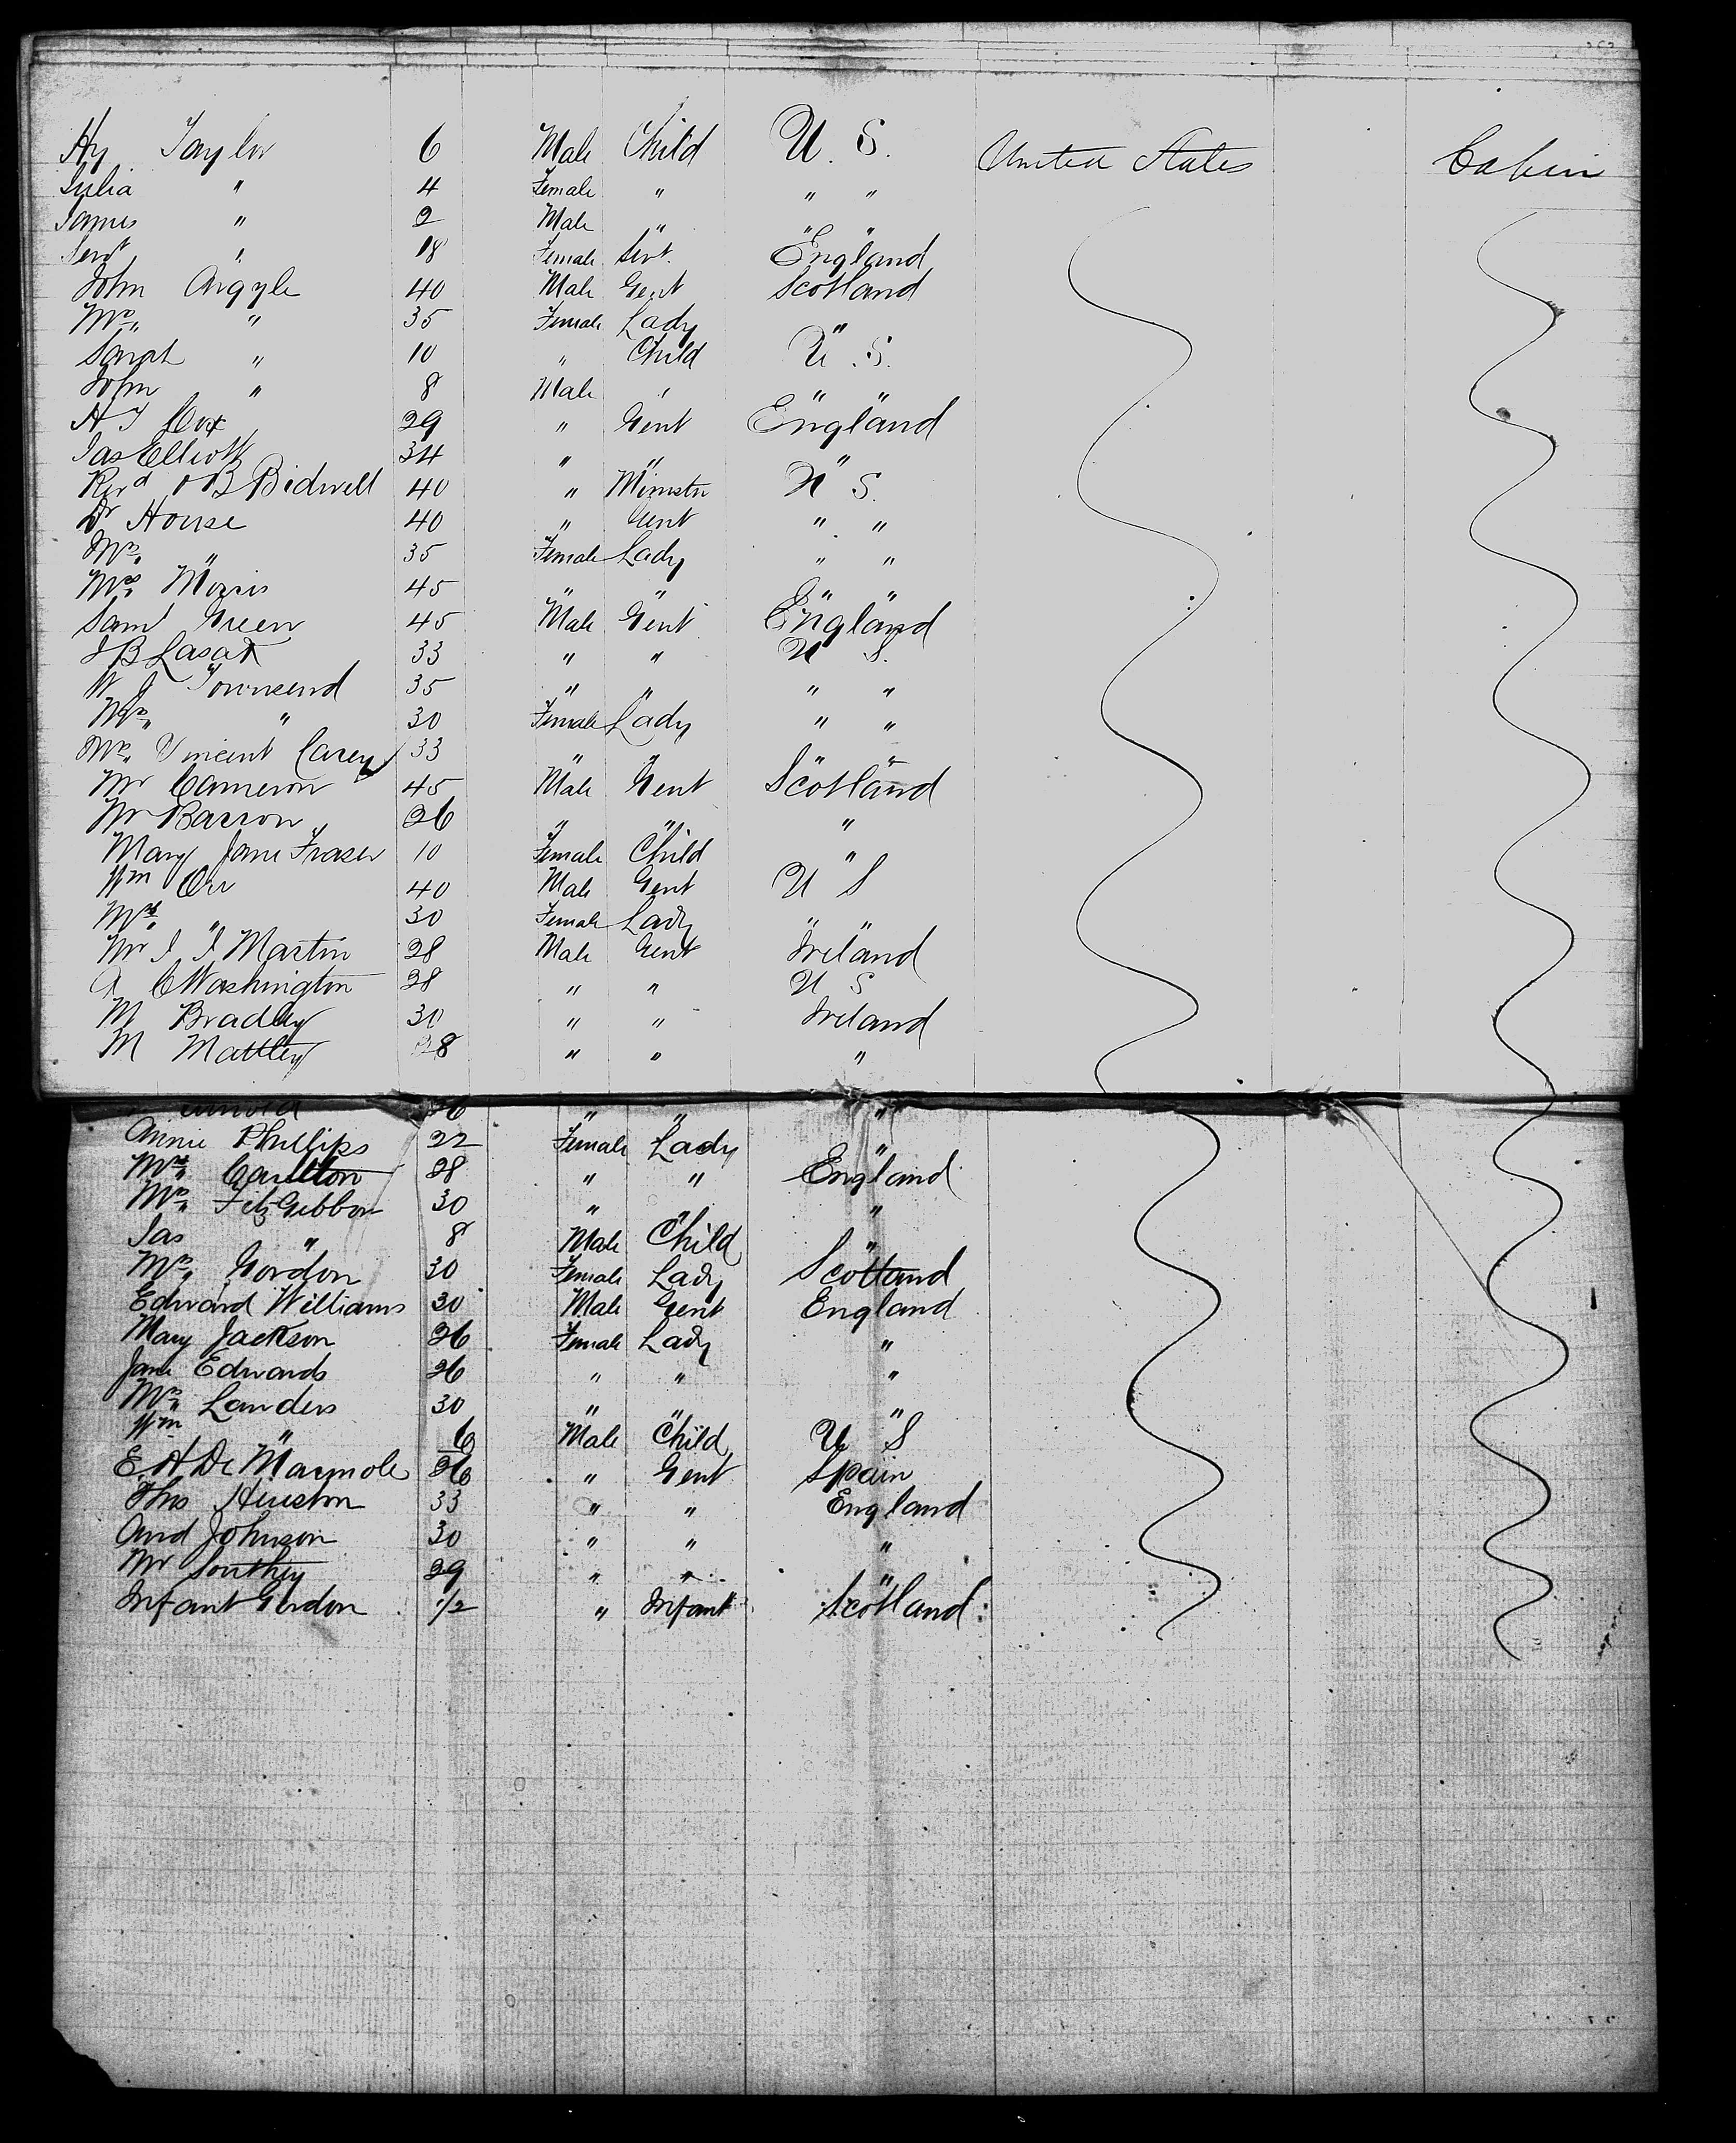 Hy Taylor 6 Male Child U. S. United States Cabin
Julia " 4 Female " " "
James " 2 Male " " "
Servt " 18 Female Servt. England
John Argyle 40 Male Gent Scotland
Mrs " 35 Female Lady "
Sarah " 10 " Child U. S.
John " 8 Male " " "
H J Cox 29 " Gent England
Jas Elliott 34 " " "
Revd B Bidwell 40 " Minister U S.
Dr House 40 " Gent " "
Mrs " 35 Female Lady " "
Mrs Morris 45 " " " "
Saml Green 45 Male Gent England
J B Lasak 33 " " U S.
W J Townsend 35 " " " "
Mrs " 30 Female Lady " "
Mrs Vincent Carey 33 " " " "
Mr Cameron 45 Male Gent Scotland
Mr Barron 26 " " "
Mary Jane Fraser 10 Female Child "
Wm Orr 40 Male Gent U S
Mrs " 30 Female Lady " "
Mr J J Martin 28 Male Gent Ireland
A C Washington 28 " " U S
M Bradley 30 " " Ireland
M Mattley 28 " " "
26 " " "
Annie Phillips 22 Female Lady "
Mrs Carlton 28 " " England
Mrs FitzGibbon 30 " " "
Jas " 8 Male Child "
Mrs Gordon 30 Female Lady Scotland
Edward Williams 30 Male Gent England
Mary Jackson 26 Female Lady "
Jane Edwards 26 " " "
Mrs Landers 30 " " "
Wm " 6 Male Child U S
E. A De Marmole 26 " Gent Spain
Thos Heuston 33 " " England
And Johnson 30 " " "
Mr Southey 29 " " "
Infant Gordon 1/2 " Infant Scotland